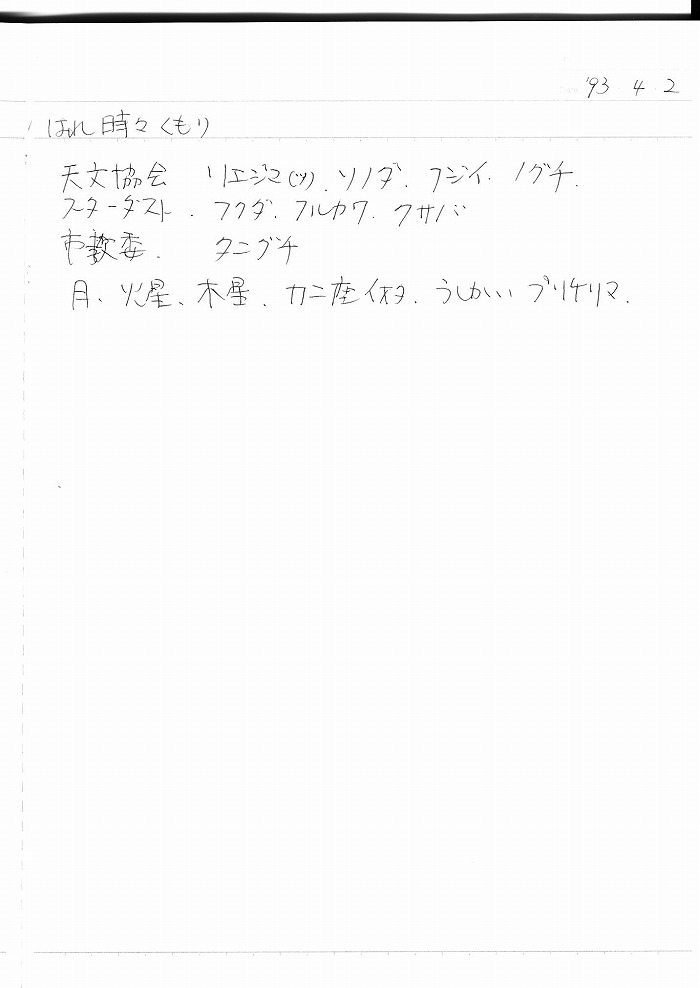 '93 4 2
はれ 時々 くもり
天文協会 ソエジマ(ツ). ソノダ. フジイ. ノグチ.
スターダスト. フクダ. フルカワ. クサバ
市教委. タニグチ
月、火星、木星. カニ座イオタ. うしかい プリケリマ.